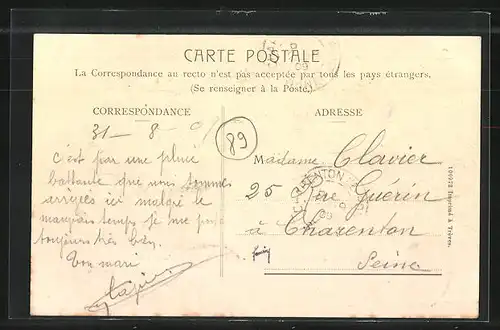 CARTE POSTALE
La Correspondance au recto n'est pas acceptée par tous les pays étrangers.
(Se renseigner à la Poste.)
CORRESPONDANCE
31 - 8 -
c'est par une pluie
battante que nous sommes
arrivés ici malgré le
mauvais temps je me porte
toujours très bien
Ton mari
89
ADRESSE
Madame Clavier
25 Rue Guérin
à Charenton
Seine
CHARENTON
109928 Imprimé à Trèves.